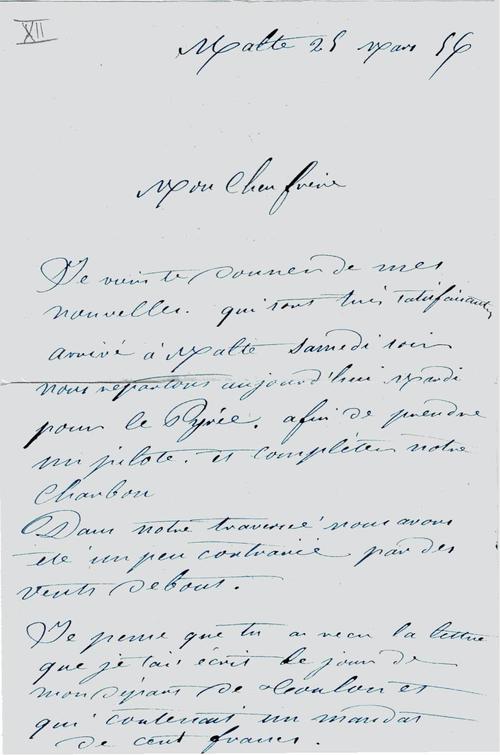 XII
Malte 25 mars 56
Mon Cher frère
Je viens te donner de mes
nouvelles. qui sont très satisfaisantes
arrivé à Malte samedi soir
nous repartons aujourd'hui Mardi
pour le Pyrée. afin de prendre
un pilote. et compléter notre
Charbon
Dans notre traversée nous avons
été un peu contrarié par des
vents debout.
Je pense que tu as recu la lettre
que je t'ai écrit le jour de
mon départ de Toulon et
qui contenait un mandat
de cent francs.